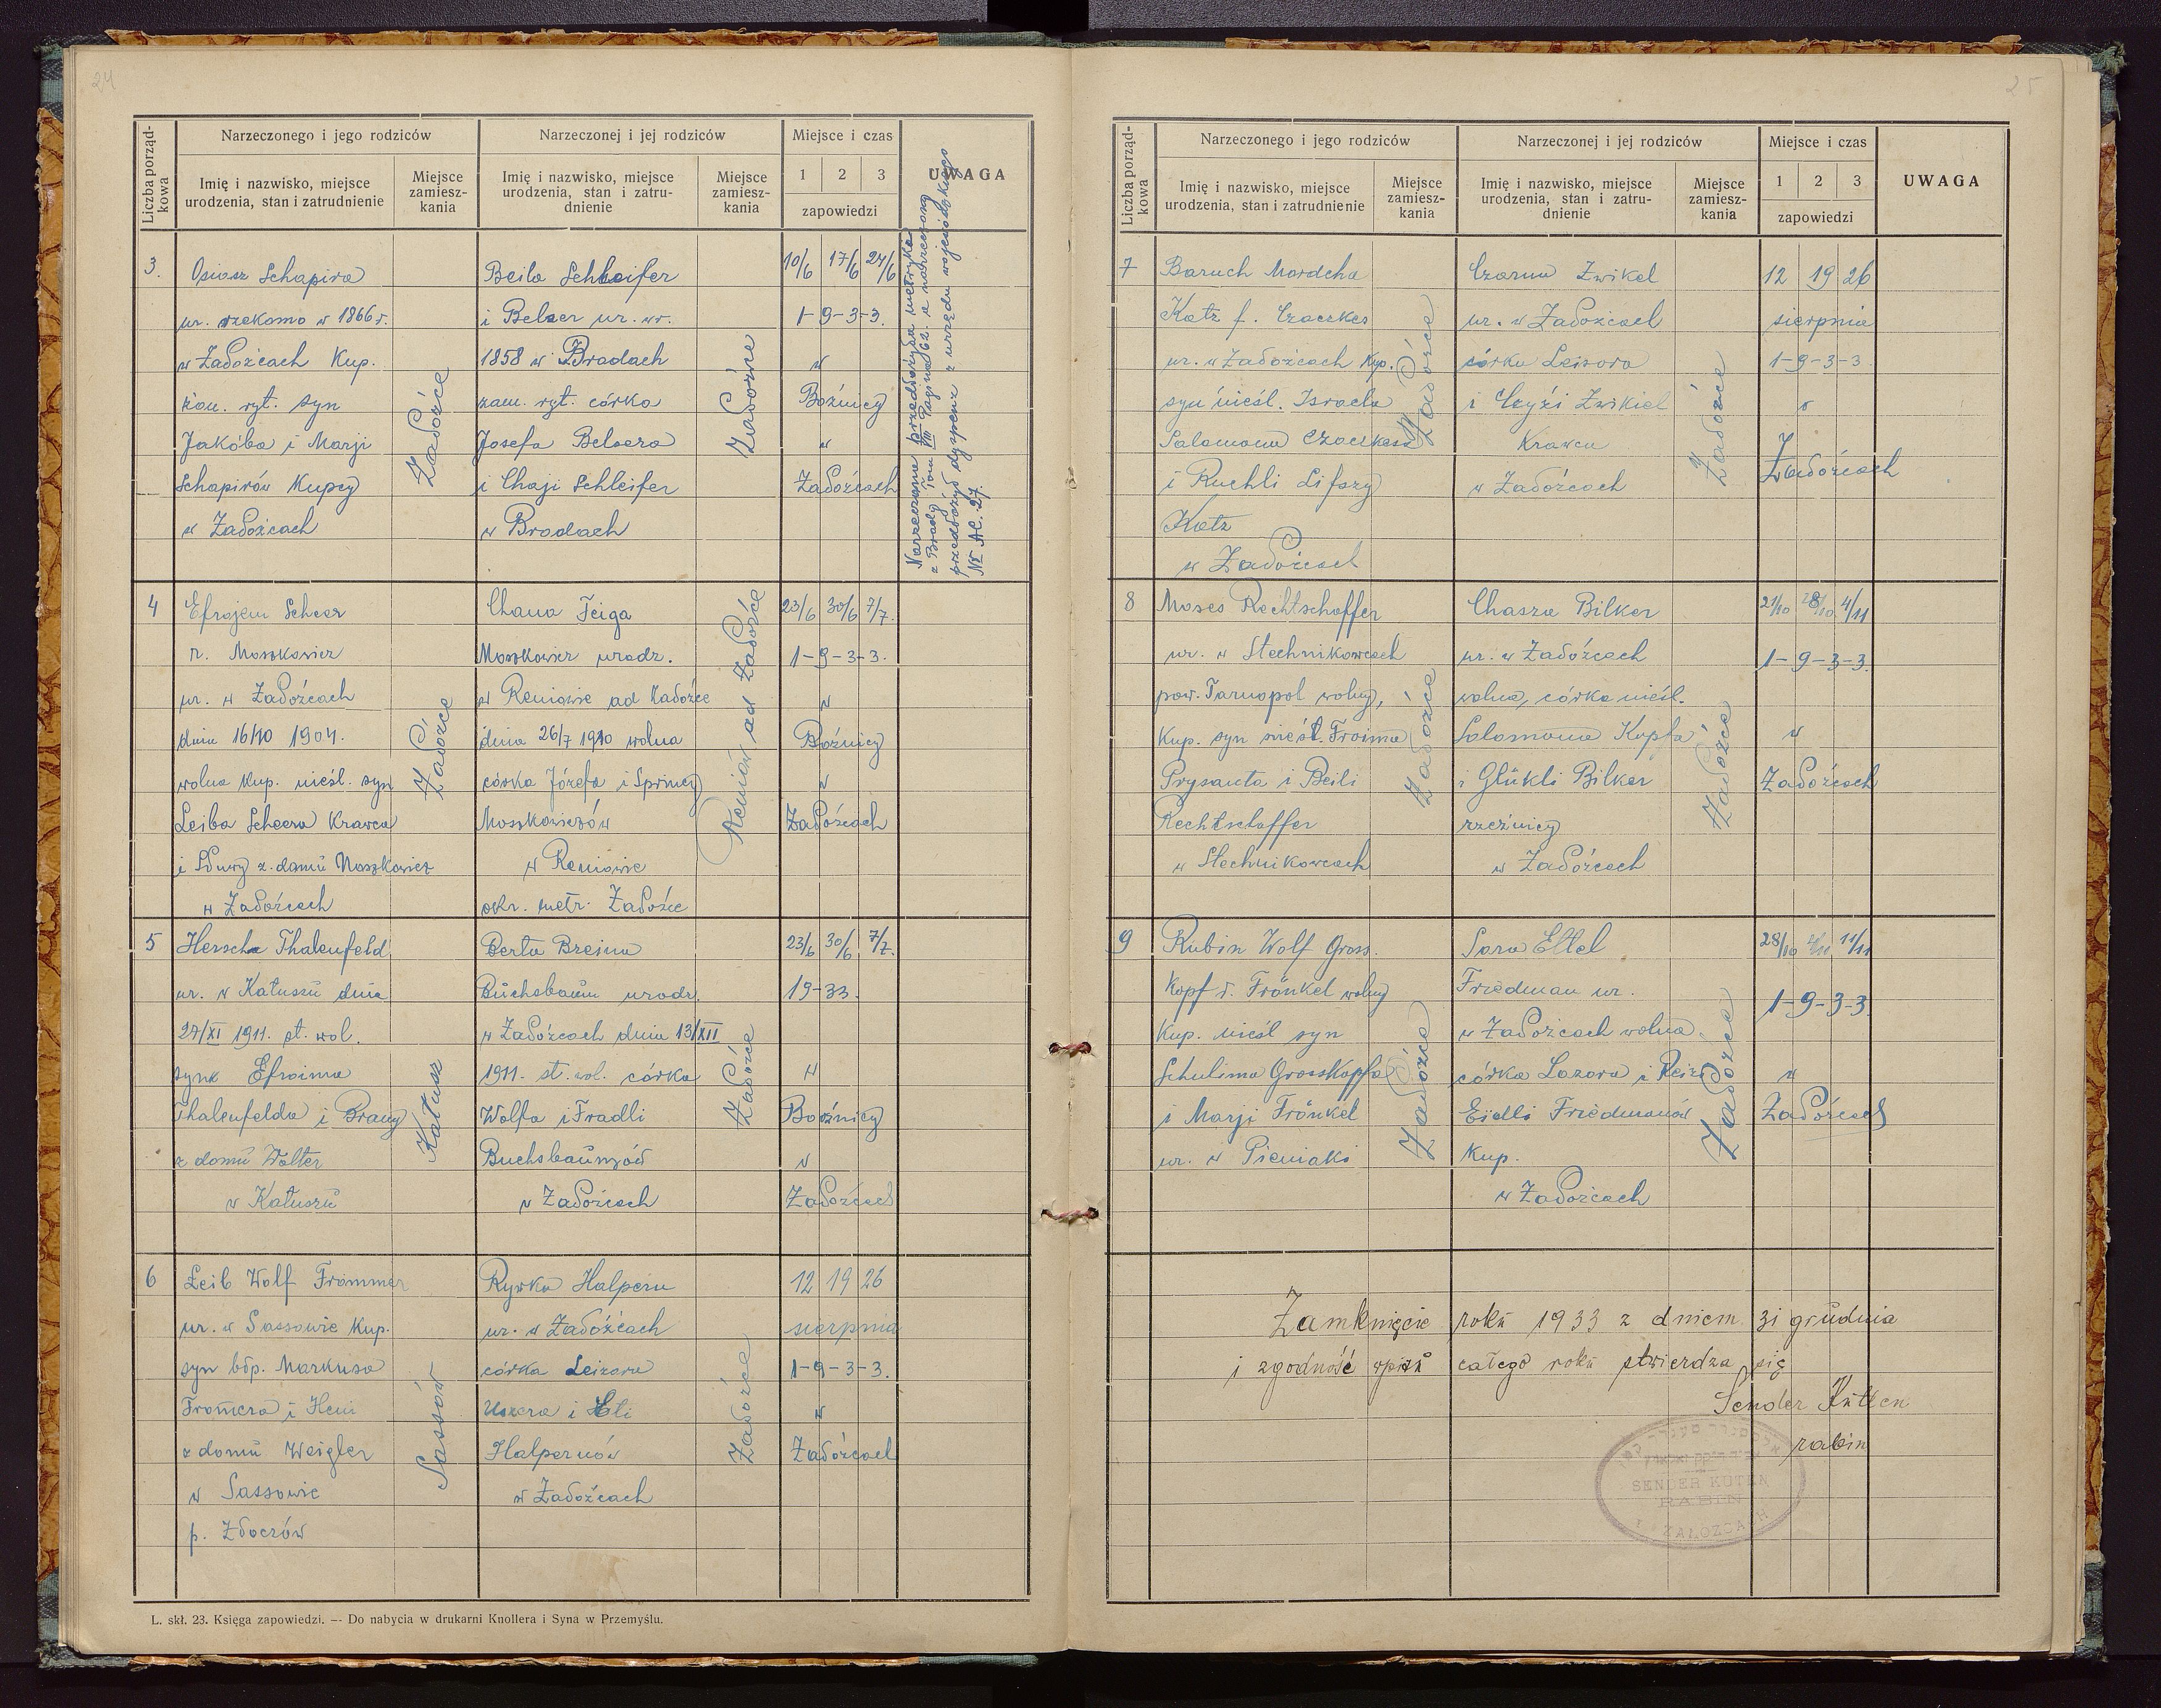 24
Liczba porząd-
kowa
Narzeczonego i jego rodziców
Narzeczonej i jej rodziców
Miejsce i czas
UWAGA
Imię i nazwisko, miejsce
urodzenia, stan i zatrudnienie
Miejsce
zamiesz-
kania
Imię i nazwisko, miejsce
urodzenia, stan i zatru-
dnienie
Miejsce
zamiesz-
kania
1 2 3
zapowiedzi
3.
Osiasz Schapira
ur. rzekomo w 1866 r.
w Załoźcach Kup.
żon. ryt. syn
Jakóba i Marji
Schapirów Kupcy
w Załoźcach
Załoźce
Beila Schleifer
i Belzer ur. w r.
1858 w Brodach
zam. ryt. córka
Josefa Belzera
i Chaji Schleifer
w Brodach
Załoźce
10/6 17/6 24/6
1-9-3-3.
w
Bożnicy
w
Załoźcach
Narzeczona przedłożyła metrykę
z Brody Tom VIII Pagina 62. a narzeczony
przedłożył dyspenz z urzędu wojewódzkiego
Nr AC. 27.
4
Efrojem Scheer
r. Moszkowicz
ur. w Załoźcach
dnia 16/10 1904.
wolna Kup. nieśl. syn
Leiba Scheera Krawca
i Sluwy z domu Moszkowicz
w Załoźcach
Załoźce
Chana Feiga
Moszkowicz urodz.
w Reniowie ad Załoźce
dnia 26/7 1910 wolna
córka Józefa i Sprincy
Moszkowiczów
w Reniowie
okr. metr. Załoźce
Reniów ad Załoźce
23/6 30/6 7/7.
1-9-3-3.
w
Bożnicy
w
Załoźcach
5
Hersch Thalenfeld
ur. w Kałuszu dnia
27/XI 1911. st. wol.
synk Efroima
Thalenfelda i Brany
z domu Wolter
w Kałuszu
Kałusz
Berta Breina
Buchsbaum urodz.
w Załoźcach dnia 13/XII
1911. st. wol. córka
Wolfa i Fradli
Buchsbaumów
w Załoźcach
Załoźce
23/6 30/6 7/7.
19-33.
w
Bożnicy
w
Załoźcach
6
Leib Wolf Frommer
ur. w Sassowie Kup.
syn błp. Markusa
Fromera i Heni
z domu Weigler
w Sassowie
p. Złoczów
Sassów
Rywka Halpern
ur. w Załoźcach
córka Leizora
Uszera i Eti
Halpernów
w Załoźcach
Załoźce
12 19 26
sierpnia
1-9-3-3.
w
Załoźcach
L. skł. 23. Księga zapowiedzi. -- Do nabycia w drukarni Knollera i Syna w Przemyślu.
25
Liczba porząd-
kowa
Narzeczonego i jego rodziców
Narzeczonej i jej rodziców
Miejsce i czas
UWAGA
Imię i nazwisko, miejsce
urodzenia, stan i zatrudnienie
Miejsce
zamiesz-
kania
Imię i nazwisko, miejsce
urodzenia, stan i zatru-
dnienie
Miejsce
zamiesz-
kania
1 2 3
zapowiedzi
7
Baruch Mordcha
Katz f. Czaczkes
ur. w Załoźcach Kup.
syn nieśl. Israela
Salamona Czaczkesa
i Ruchli Lifszy
Katz
w Załoźcach
Załoźce
Czarna Zwikel
ur. w Załoźcach
córka Leisora
i Czyzi Zwikiel
Krawca
w Załoźcach
Załoźce
12 19 26
sierpnia
1-9-3-3
w
Załoźcach
8
Moses Rechtschaffer
ur. w Stechnikowcach
pow. Tarnopol wolny,
Kup. syn nieśl. Froima
Prysanta i Beili
Rechtschaffer
w Stechnikowcach
Załoźce
Chasza Bilker
ur. w Załoźcach
wolna, córka nieśl.
Salamona Kopfa
i Glükli Bilker
rzeźnicy
w Załoźcach
Załoźce
21/10 28/10 4/11
1-9-3-3.
w
Załoźcach
9
Rubin Wolf Gross.
Kopf v. Fränkel wolny
Kup. nieśl syn
Schulima Grosskopfa
i Marji Fränkel
ur. w Pieniaki
Załoźce
Sara Ettel
Friedman ur.
w Załoźcach wolna.
córka Lazora i Reizi
Eidli Friedmanów
Kup.
w Załoźcach
Załoźce
28/10 4/11 11/11
1-9-3-3.
w
Załoźcach
Zamknięcie roku 1933 z dniem 31 grudnia
i zgodność wpisu całego roku stwierdza się
Sender Kuten
rabin
SENDER KUTEN
RABIN
ZAŁOŹCACH